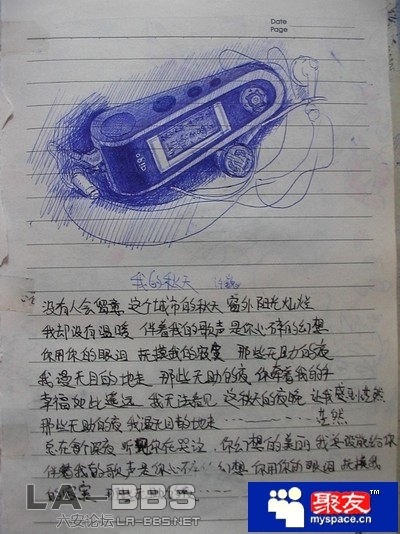 Date
Page
我的秋天 许巍
没有人会留意 这个城市的秋天 窗外阳光灿烂
我却没有温暖 伴着我的歌声 是你心碎的幻想
你用你的眼泪 抚摸我的寂寞 那些无助的夜
我漫无目的地走 那些无助的夜 你牵着我的手
幸福如此遥远 我无法看见 这秋天的夜晚 让我感到茫然
那些无助的夜 我漫无目的地走 ………… 茫然
总在每个深夜 听见你在哭泣 你幻想的美丽 我没能给你
伴着我的歌声是你心 幻想 你用你的眼泪 抚摸我
的寂寞
LA-BBS
六安论坛LA-BBS.NET
聚友™
myspace.cn